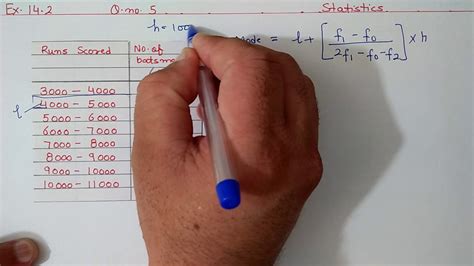 Ex. 14.2 Q.no. 5 Statistics
h = 100
Mode = l + [ f₁ - f₀ / 2f₁ - f₀ - f₂ ] × h
Runs Scored No. of
batsme
3000 - 4000
l 4000 - 5000
5000 - 6000
6000 - 7000
7000 - 8000
8000 - 9000
9000 - 10000
10000 - 11000